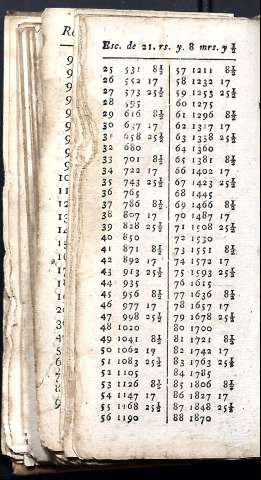 Esc. de 21. rs. y. 8 mrs. y ½
25 531 8½ 57 1211 8½
26 552 17 58 1232 17
27 573 25½ 59 1253 25½
28 595 60 1275
29 616 8½ 61 1296 8½
30 637 17 62 1317 17
31 658 25½ 63 1338 25½
32 680 64 1360
33 701 8½ 65 1381 8½
34 722 17 66 1402 17
35 743 25½ 67 1423 25½
36 765 68 1445
37 786 8½ 69 1466 8½
38 807 17 70 1487 17
39 828 25½ 71 1508 25½
40 850 72 1530
41 871 8½ 73 1551 8½
42 892 17 74 1572 17
43 913 25½ 75 1593 25½
44 935 76 1615
45 956 8½ 77 1636 8½
46 977 17 78 1657 17
47 998 25½ 79 1678 25½
48 1020 80 1700
49 1041 8½ 81 1721 8½
50 1062 17 82 1742 17
51 1083 25½ 83 1763 25½
52 1105 84 1785
53 1126 8½ 85 1806 8½
54 1147 17 86 1827 17
55 1168 25½ 87 1848 25½
56 1190 88 1870